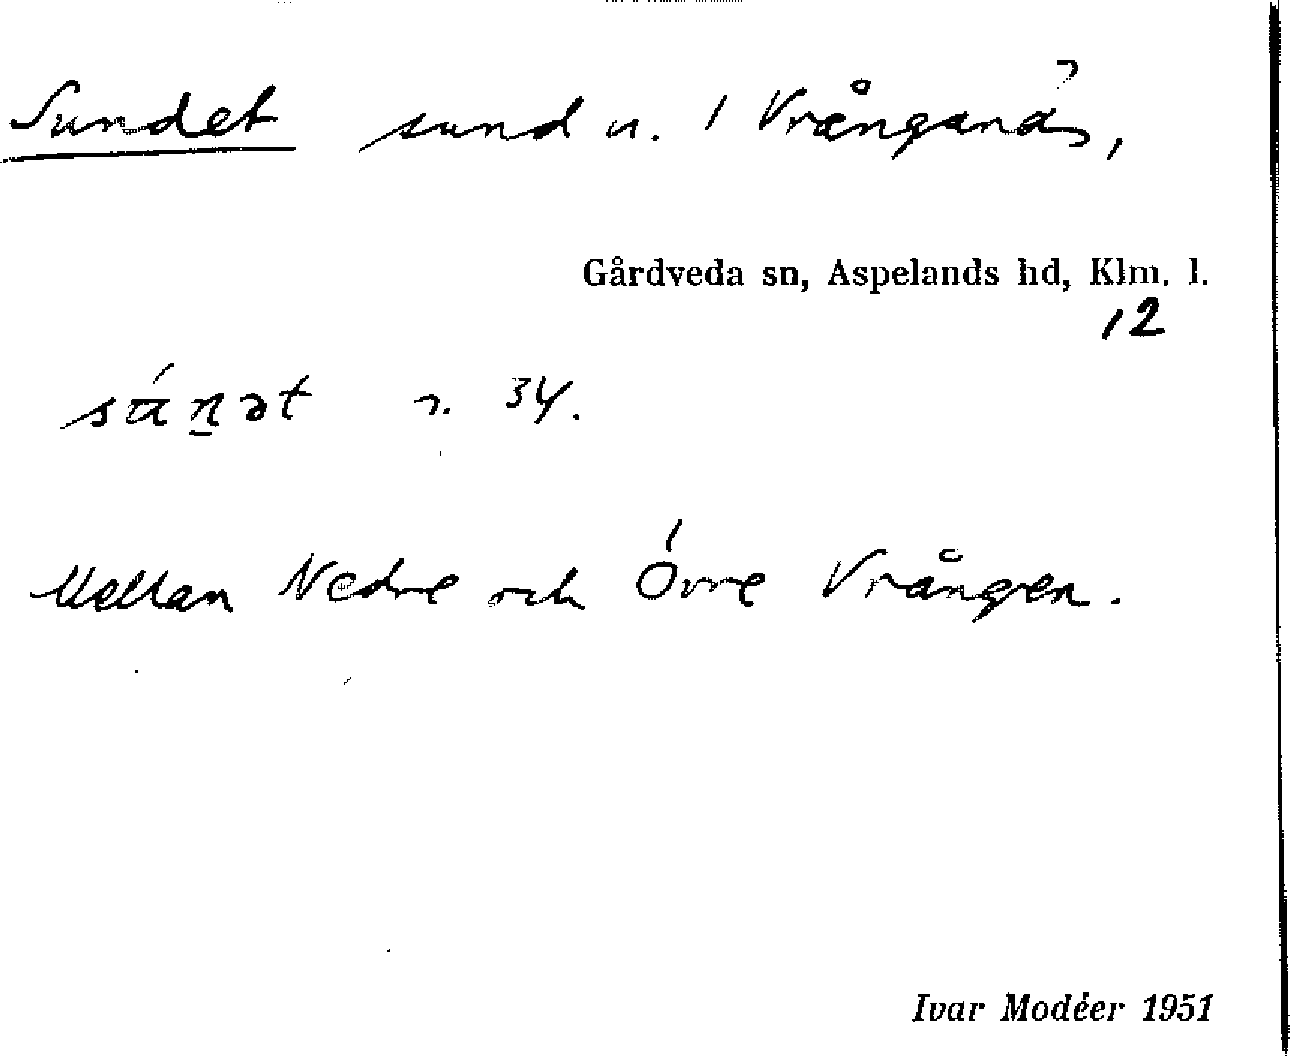 Sundet sund n. i Vrånganäs,
Gårdveda sn, Aspelands hd, Klm. l.
12
34.
Mellan Nedre och Övre Vrången.
Ivar Modéer 1951